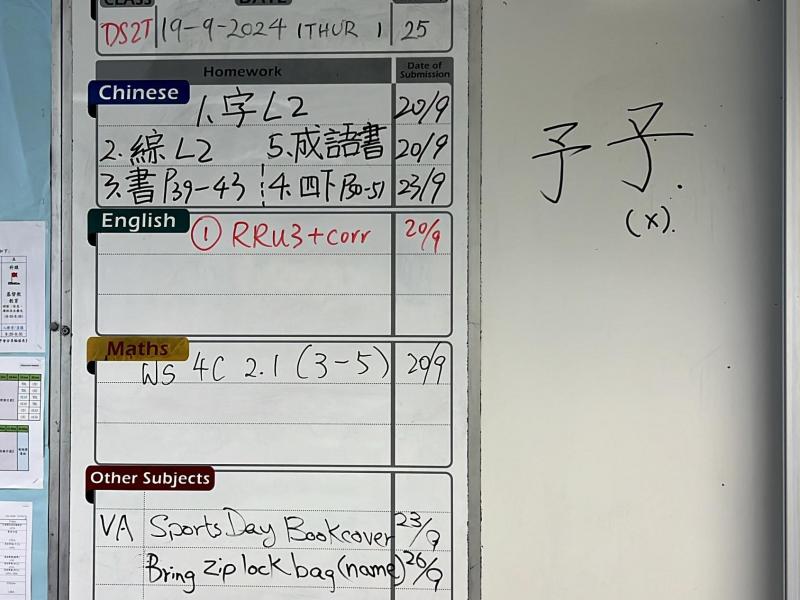 CLASS DATE
DS2T 19-9-2024 (THUR) 25
Homework Date of Submission
Chinese
1. 字 L2 20/9
2. 綜 L2 5. 成語書 20/9
3. 書 P39-43 4. 四下 P50-51 23/9
English
① RRU3+corr 20/9
Maths
WS 4C 2.1 (3-5) 20/9
Other Subjects
VA Sports Day Bookcover 23/9
Bring zip lock bag (name) 26/9
予 子.
(x).